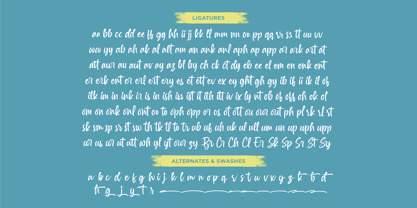 LIGATURES
aa bb cc dd ee ff gg hh ii jj kk ll mm nn oo pp qq rr ss tt uu vv
ww yy ab ah ak al all am an ank anl aph ap app ar ark art at
att aur au aut av ay az bl by ch ck ct dy eb ee el em en enk ent
er erk ent er erl ert ery es et ett ev ex ey ght gh gy ib if ii ik il of
ilk im in ink ir is in ish iss ist it ith itt iv ly nt ob of off oh ok ol
om on onk onl ont oo to oph app or os ot ott ou our out ph pl rk rl st
sk sm sp sr st sw th tk tl to tr ub uf uh uk ul ull um un up uph upp
ur us ur ut utt wh yl yt zy Br Cr Ch Cl Sk Sp Sr St Sy
ALTERNATES & SWASHES
a b c d e f g h i j k l m n o p q r s t u v w x y z t d
h g j y t s